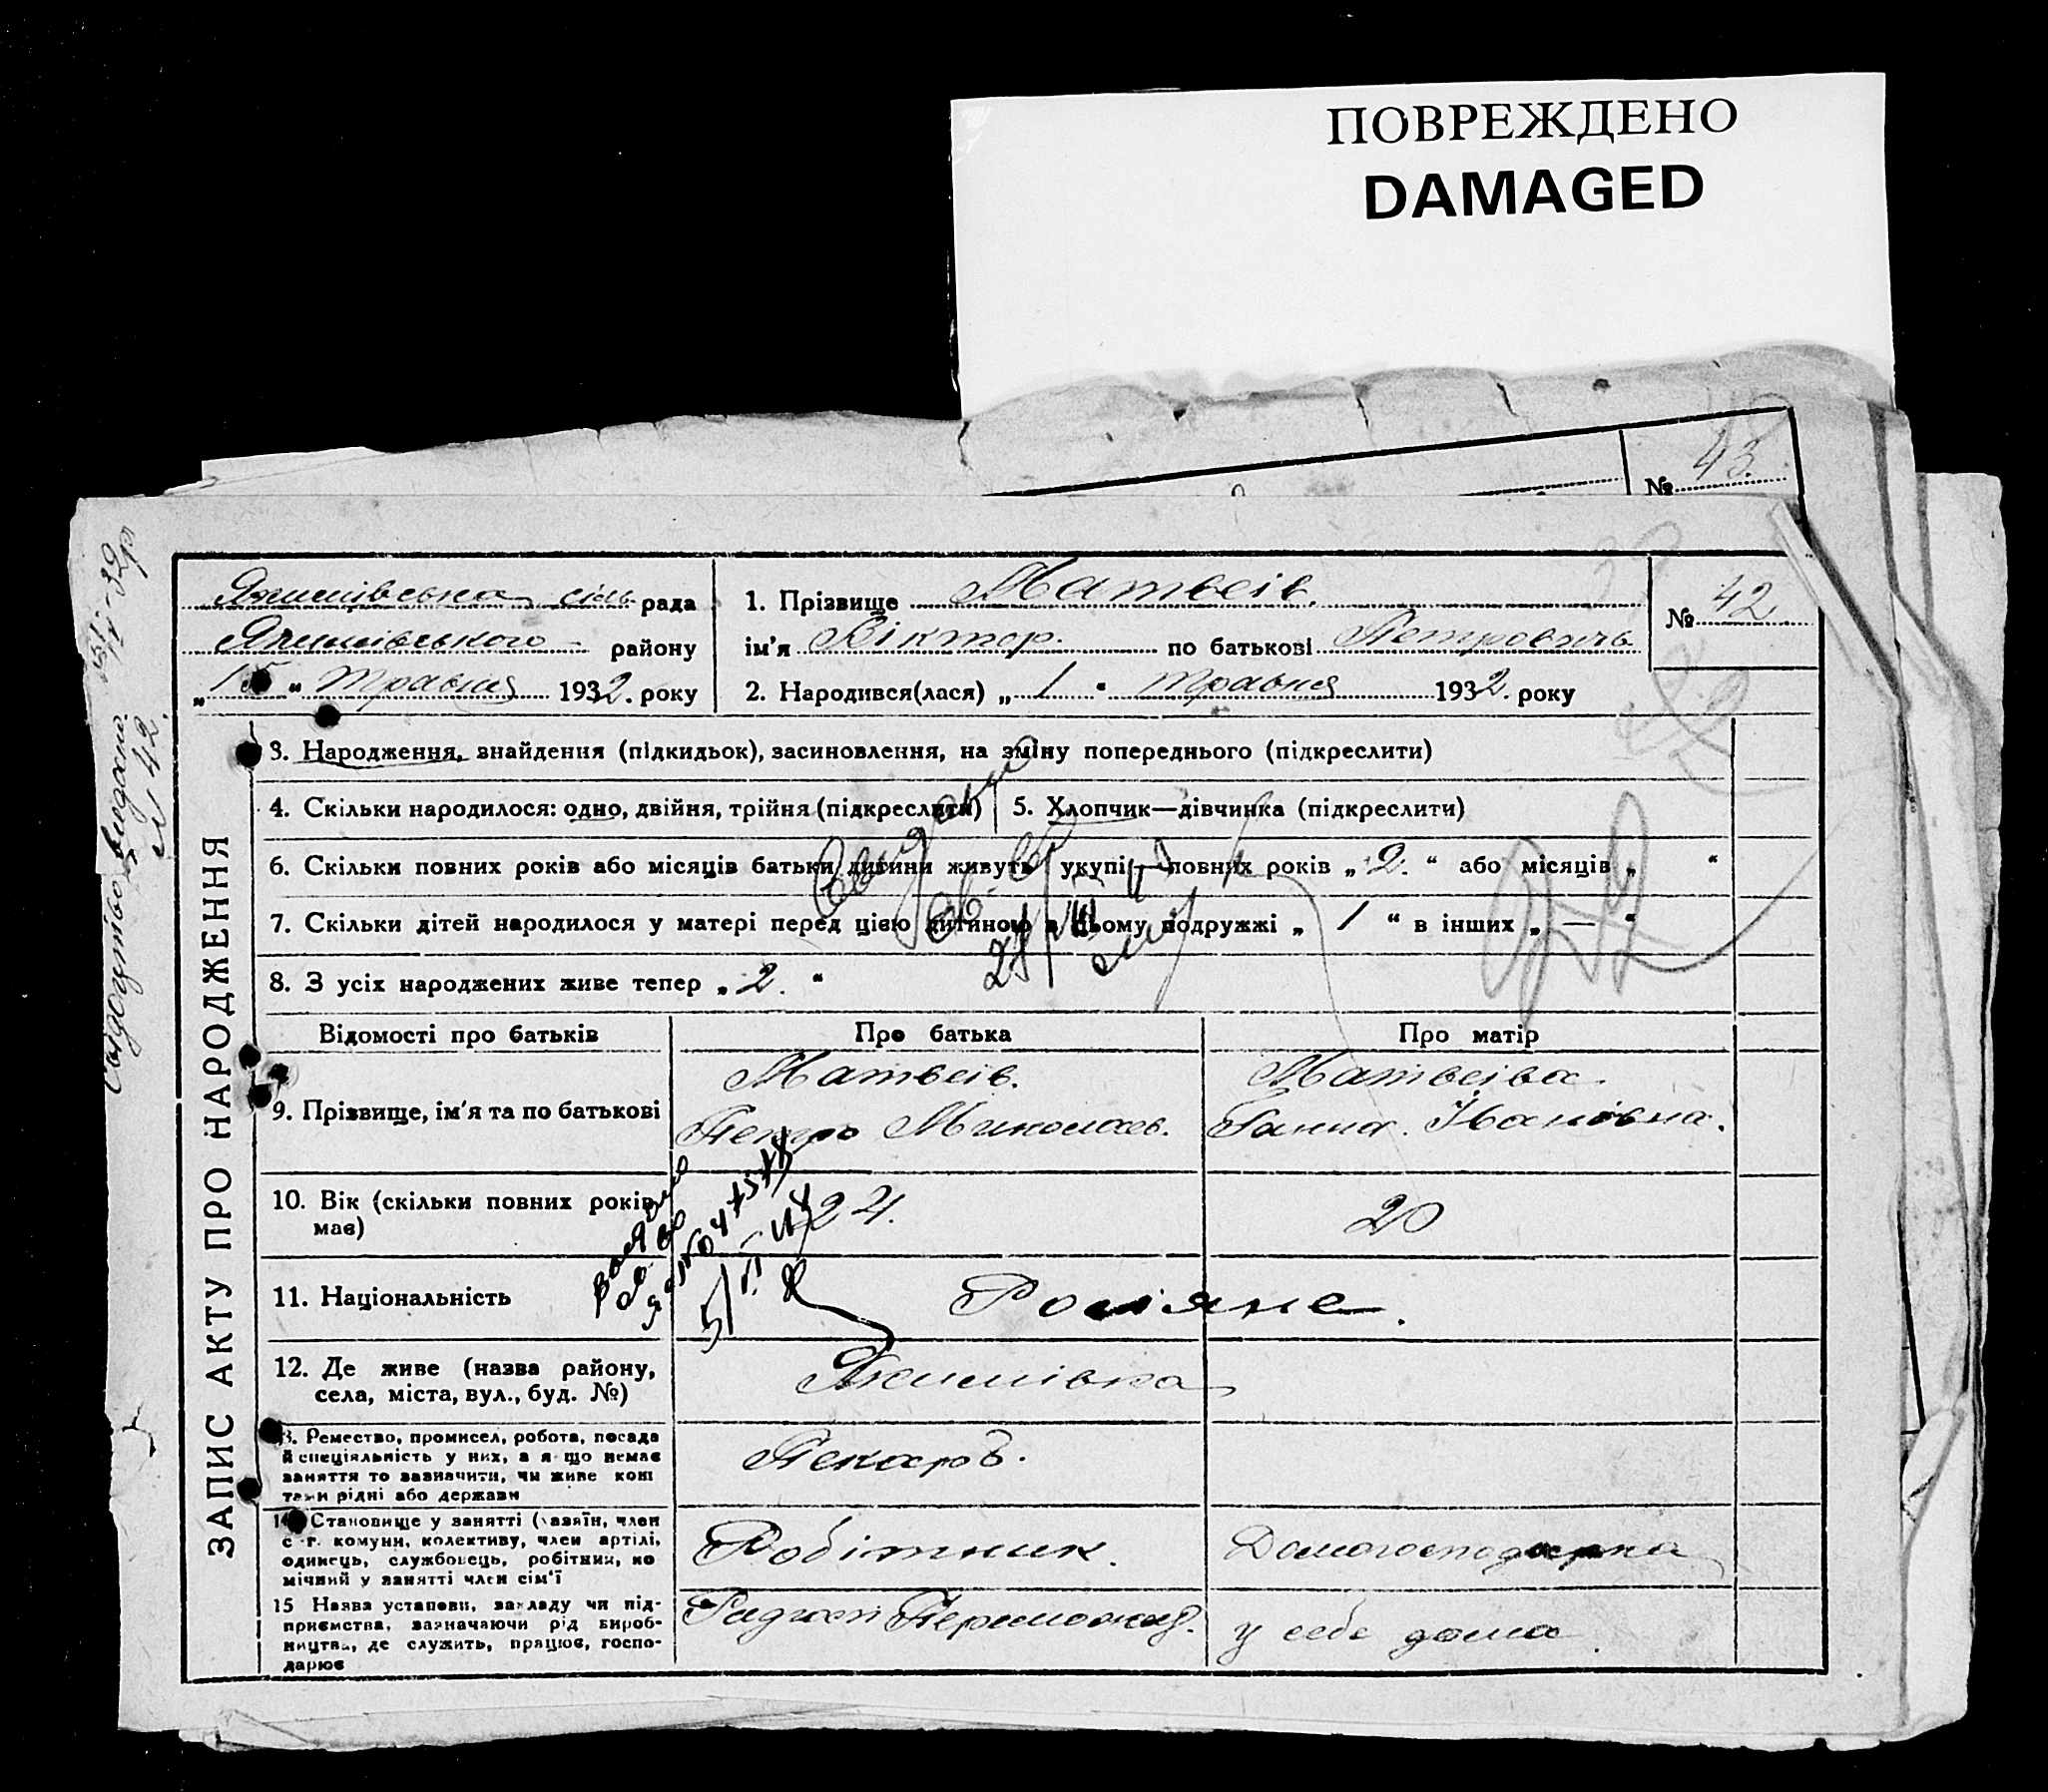 ПОВРЕЖДЕНО
DAMAGED
№ 43.
ЗАПИС АКТУ ПРО НАРОДЖЕННЯ
Якимівська сіль рада
Якимівського району
„15“ травня 1932. року
1. Прізвище Матвеів.
ім'я Віктор. по батькові Петровичь
2. Народився(лася) „1“ травня 1932. року
№ 42
3. Народження, знайдення (підкидьок), засиновлення, на зміну попереднього (підкреслити)
4. Скільки народилося: одно, двійня, трійня (підкреслити)
5. Хлопчик—дівчинка (підкреслити)
6. Скільки повних років або місяців батьки дитини живуть укупі—повних років „2.“ або місяців „ “
7. Скільки дітей народилося у матері перед цією дитиною в цьому подружжі „1“ в інших „—“
8. З усіх народжених живе тепер „2.“
Відомості про батьків Про батька Про матір
9. Прізвище, ім'я та по батькові
Матвеів. Матвеіва.
Петро Миколаев. Ганна. Івановна.
10. Вік (скільки повних років
має)
24. 20
11. Національність
Росіяне.
12. Де живе (назва району,
села, міста, вул., буд. №)
Якимівка
13. Ремество, промисел, робота, посада
й спеціяльність у них, а якщо немає
заняття то зазначити, чи живе кош
тами рідні або держави
Пекарь.
14. Становище у занятті (хазяїн, член
с.-г. комуни, колективу, член артілі,
одинець, службовець, робітник, по
мічний у занятті член сім'ї
Робітник. Домогосподарка
15 Назва установи, закладу чи під-
приємства, зазначаючи рід вироб-
ництва, де служить, працює, госпо-
дарює
у себе дома.
Свідоцтво видано
№ 42.